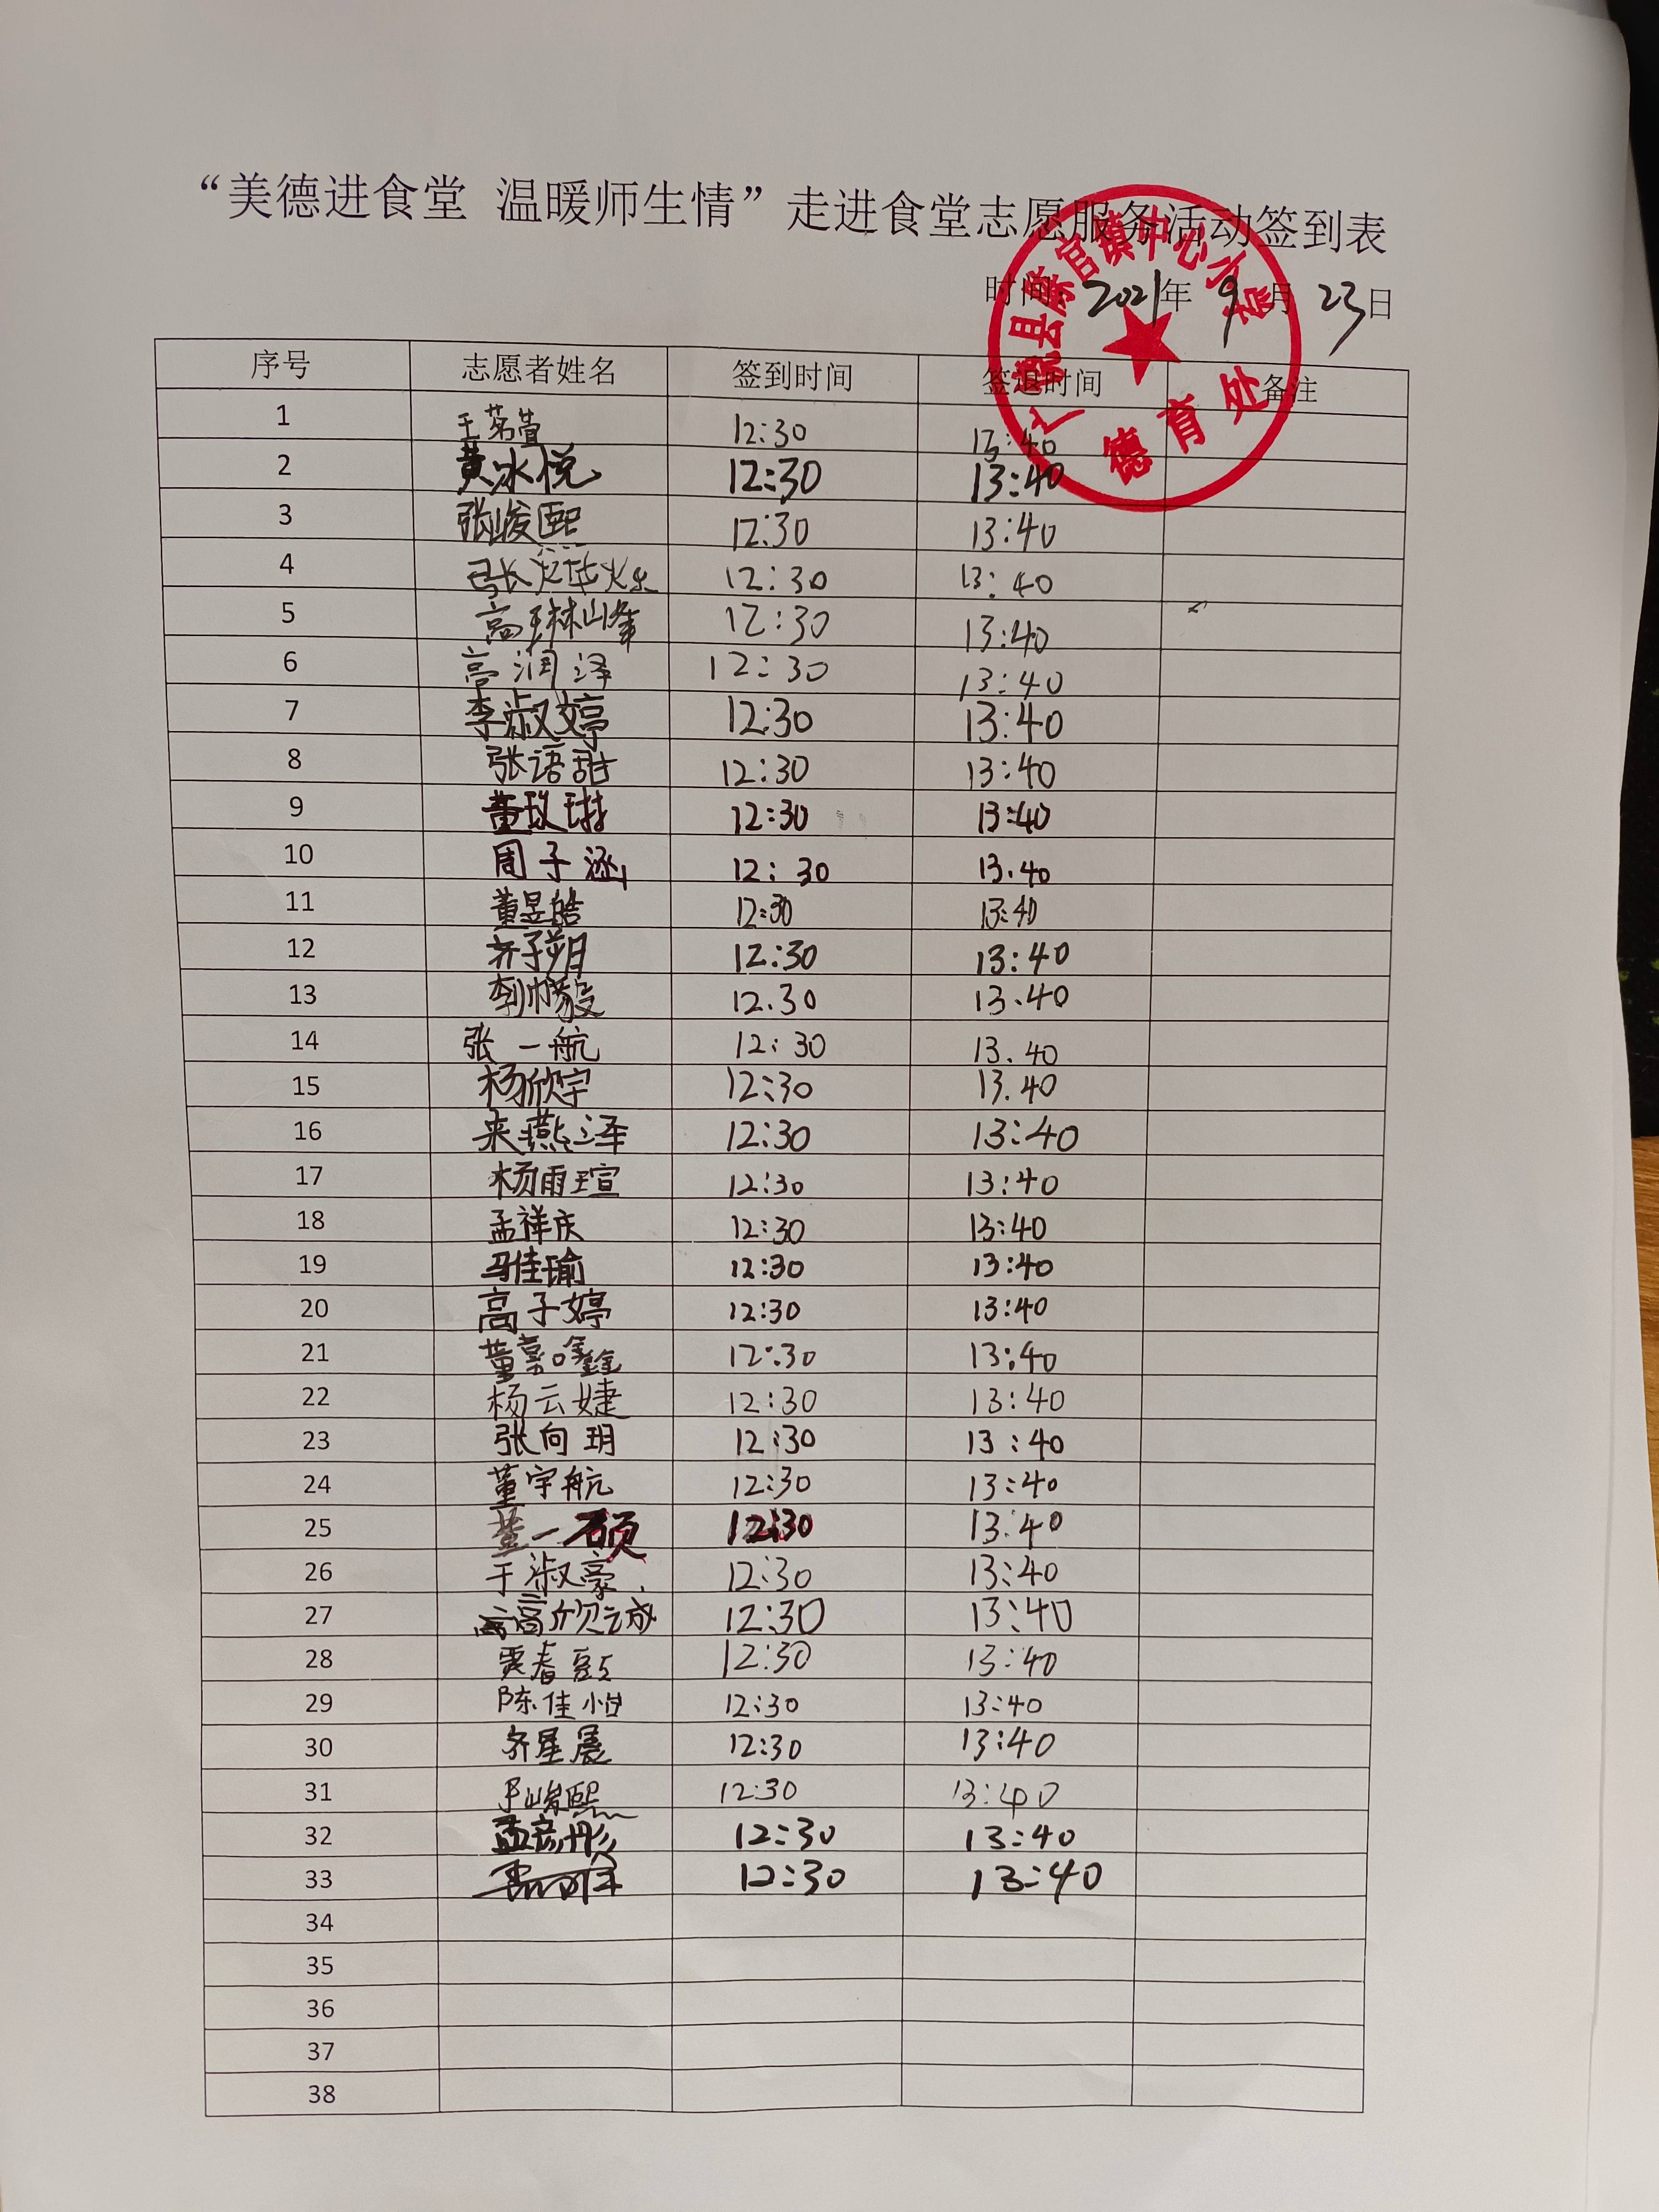 “美德进食堂 温暖师生情”走进食堂志愿服务活动签到表
时间: 2021年 9月 23日
广饶县陈官镇中心小学
德育处
序号 志愿者姓名 签到时间 签退时间 备注
1 王茗萱 12:30 13:40
2 黄冰悦 12:30 13:40
3 张峻熙 12:30 13:40
4 张 12:30 13:40
5 高琳峰 12:30 13:40
6 高润泽 12:30 13:40
7 李淑婷 12:30 13:40
8 张语甜 12:30 13:40
9 董玖琳 12:30 13:40
10 周子涵 12:30 13.40
11 董昱皓 12:30 13:40
12 齐子朔 12:30 13:40
13 12.30 13.40
14 张一航 12:30 13.40
15 杨欣宇 12:30 13.40
16 来燕泽 12:30 13:40
17 杨雨瑄 12:30 13:40
18 孟祥庆 12:30 13:40
19 马佳瑜 12:30 13:40
20 高子婷 12:30 13:40
21 董嘉鑫 12:30 13:40
22 杨云婕 12:30 13:40
23 张向玥 12:30 13:40
24 董宇航 12:30 13:40
25 董一硕 12:30 13:40
26 于淑豪 12:30 13:40
27 高欣诚 12:30 13:40
28 贾春 12:30 13:40
29 陈佳怡 12:30 13:40
30 齐星晨 12:30 13:40
31 峻熙 12:30 13:40
32 孟彦彤 12:30 13:40
33 12:30 13:40
34
35
36
37
38